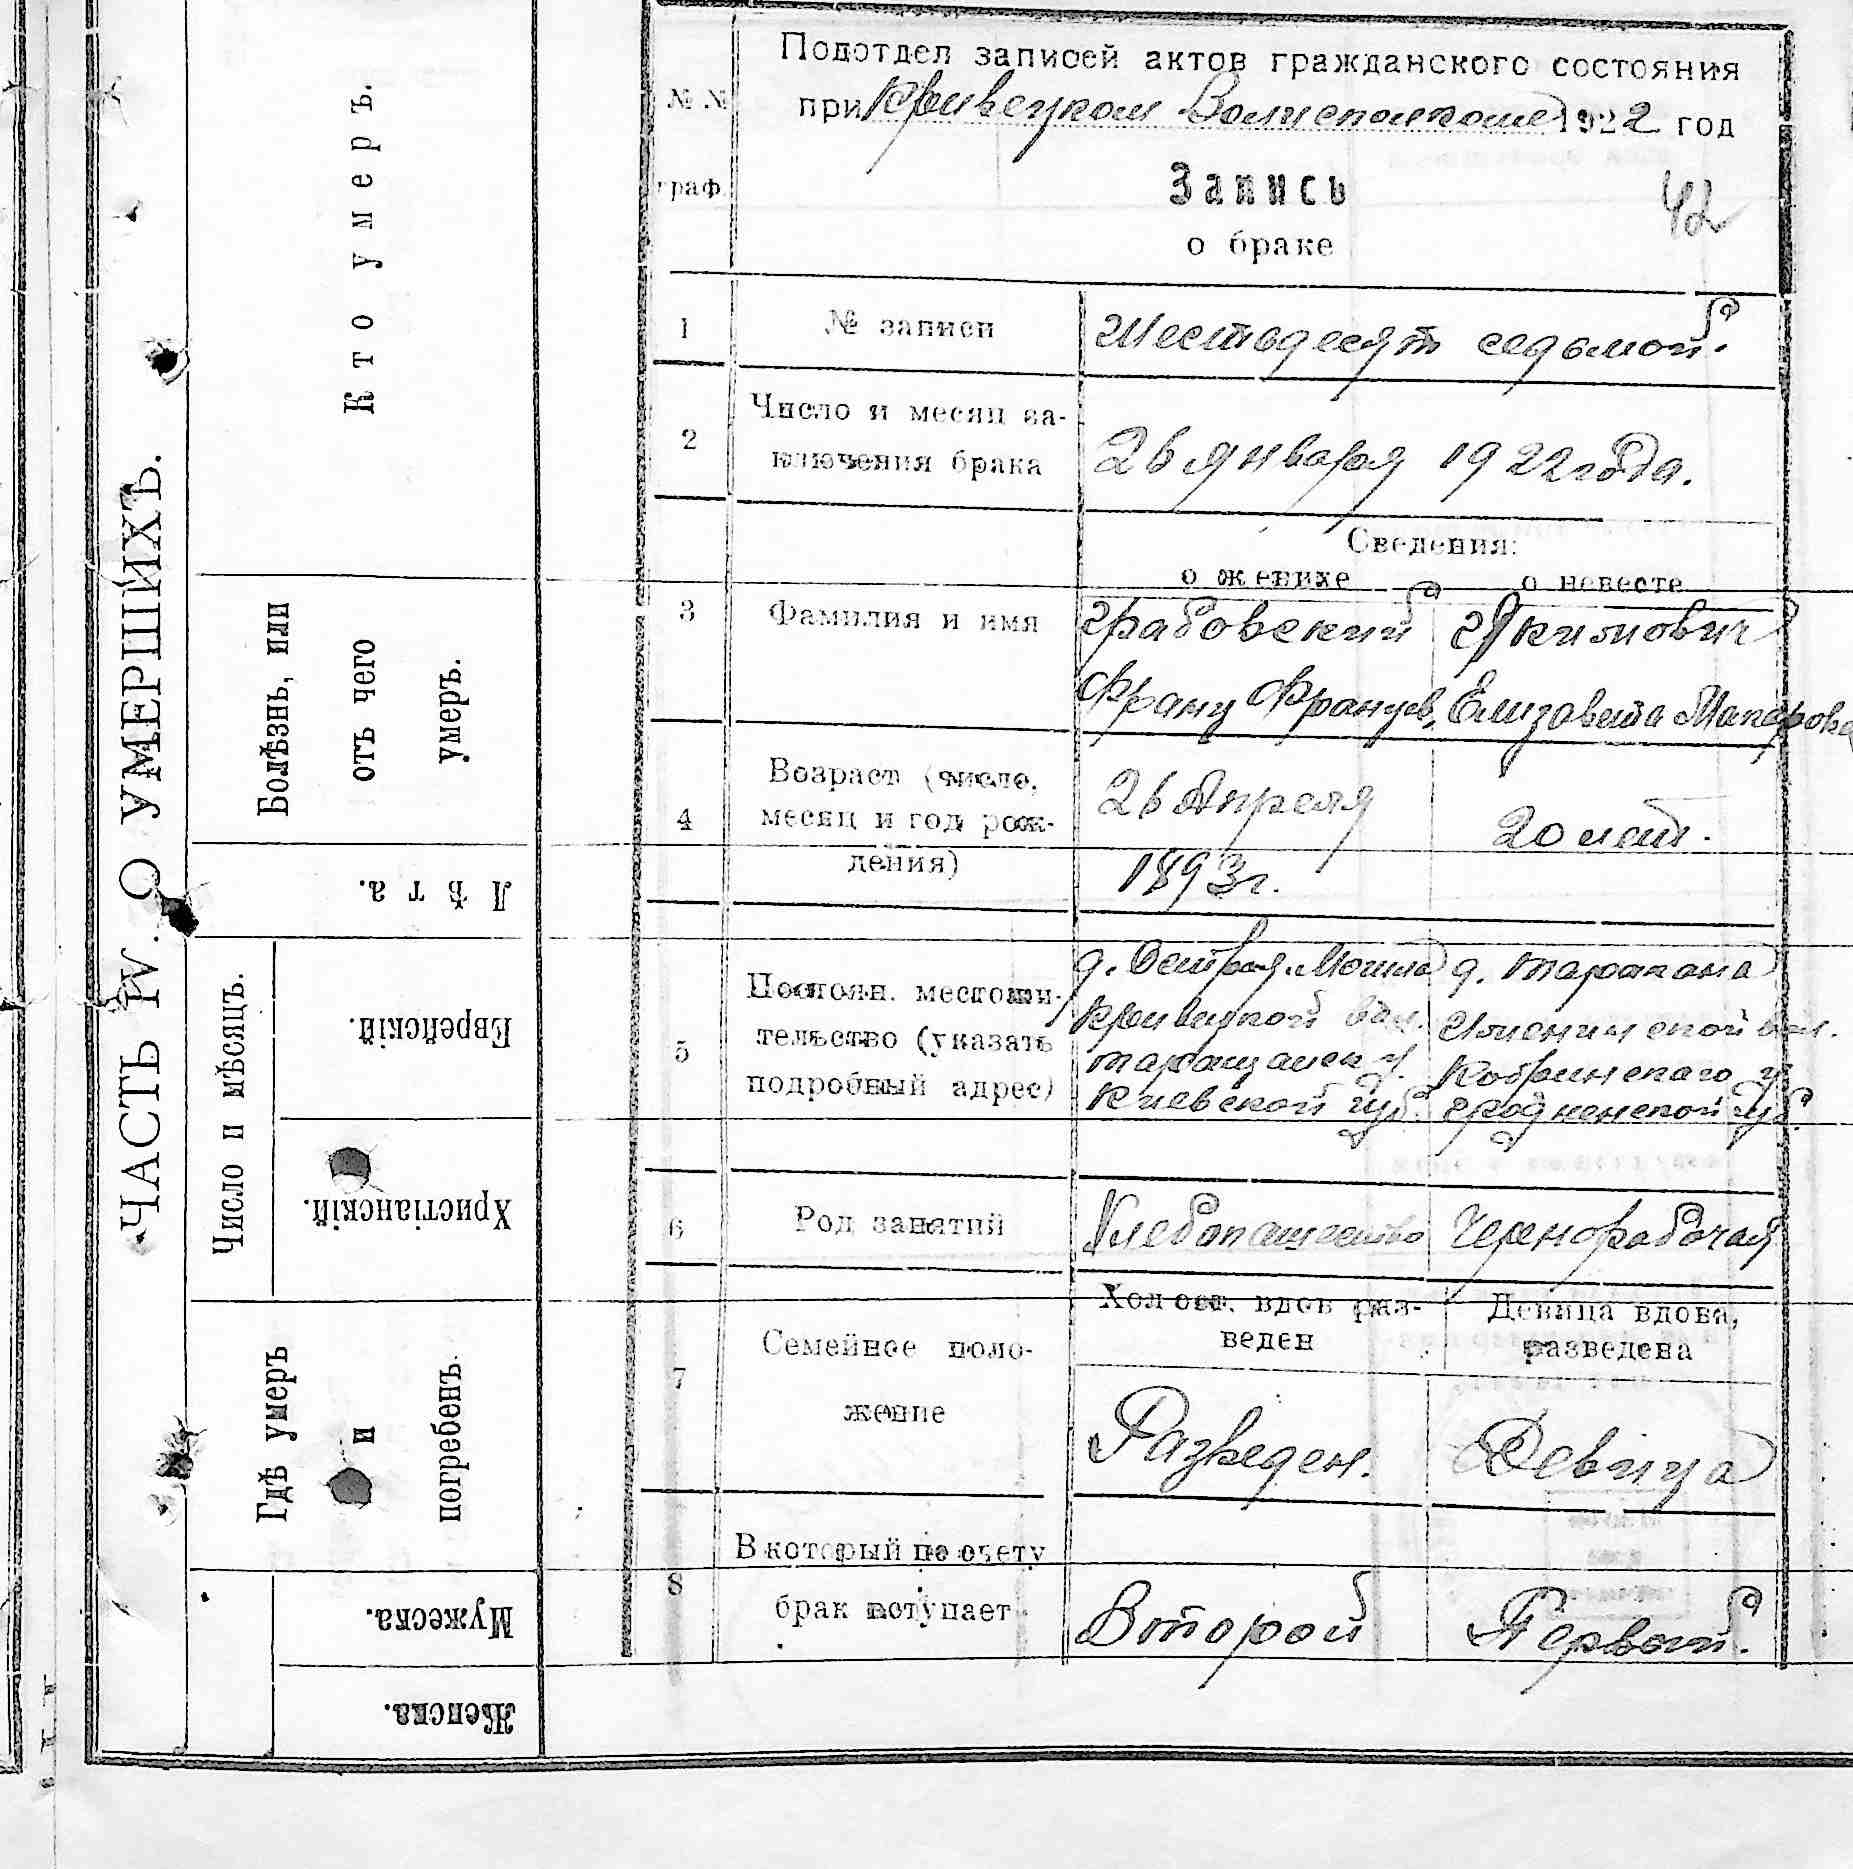 ЧАСТЬ IV. О УМЕРШИХЪ.
Кто умеръ.
Болѣзнь, или
отъ чего
умеръ.
Лѣта.
Число и мѣсяцъ.
Еврейскій.
Христіанскій.
Гдѣ умеръ
и
погребенъ.
Мужеска.
Женска.
№ №
граф.
Подотдел записей актов гражданского состояния
при Кривецком Волисполкоме 1922 год
Запись
42
о браке
1 № записи Шестьдесят седьмой.
2 Число и месяц за-
ключения брака 26 января 1922 года.
Сведения:
о женихе о невесте
3 Фамилия и имя Грабовский Якимович
Франц Францев. Елизавета Макарова
4 Возраст (число,
месяц и год рож-
дения)
26 Апреля
1893 г.
20 лет.
5 Постоян. местожи-
тельство (указать
подробный адрес)
д. Острая-Могила
Кривецкой вол.
Таращанск у.
Киевской губ.
д. Таракана
вол.
Кобринскаго у.
Гродненской губ.
6 Род занятий Хлебопашество Чернорабочая
7 Семейное поло-
жение
Холост, вдов раз-
веден
Девица вдова,
разведена
Разведен. Девица
8 В который по счету
брак вступает Второй Первый.